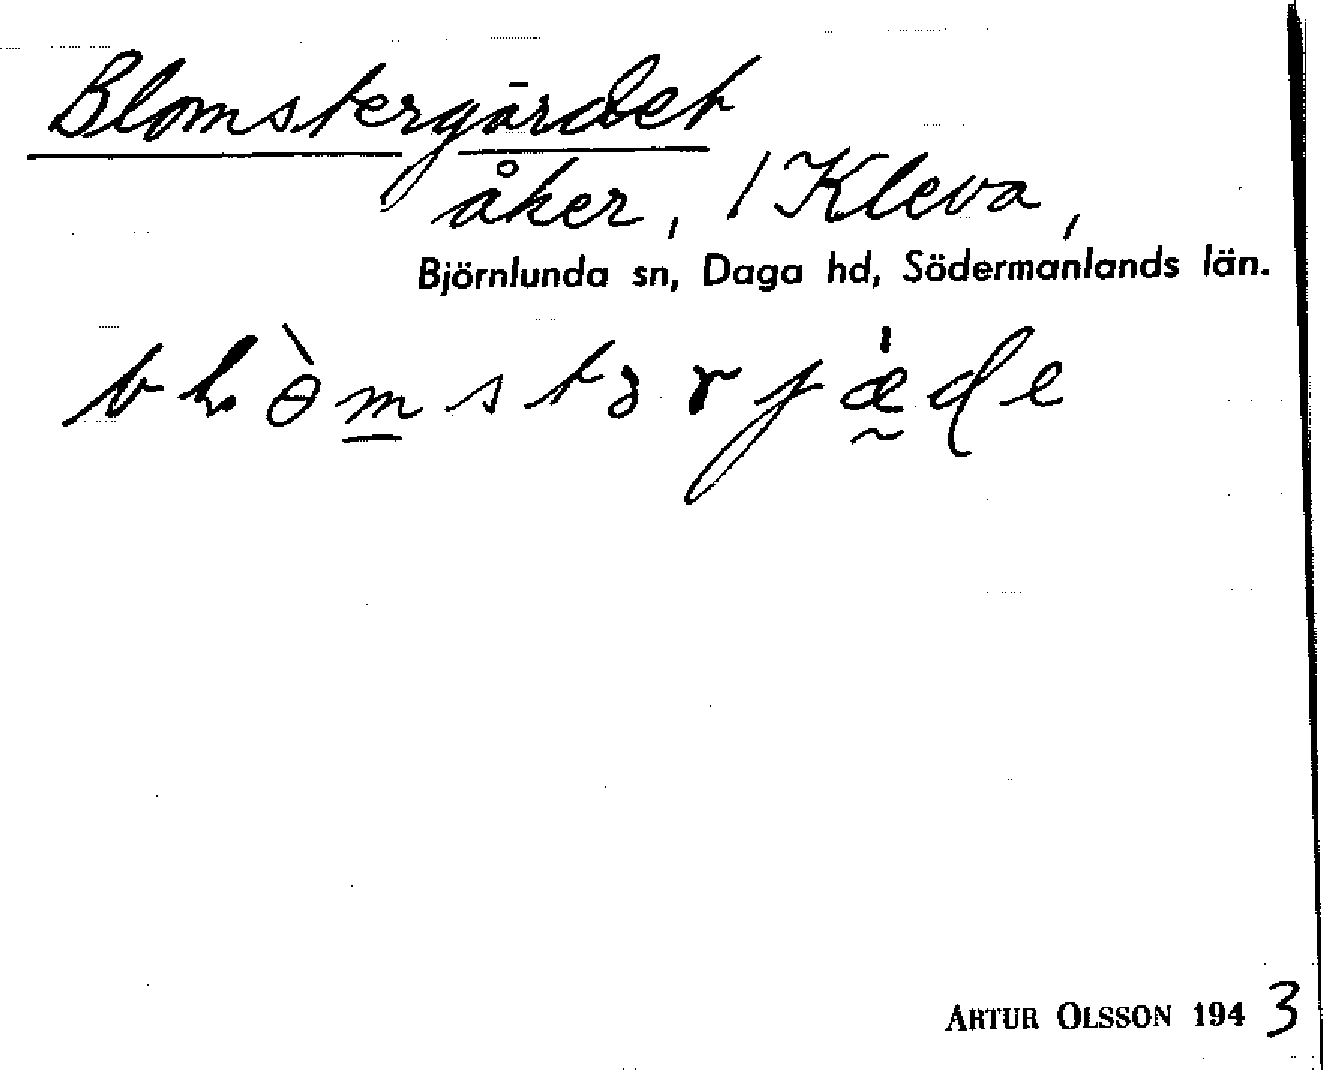 Blomstergärdet
åker, / Kleva,
Björnlunda sn, Daga hd, Södermanlands län.
ARTUR OLSSON 1943